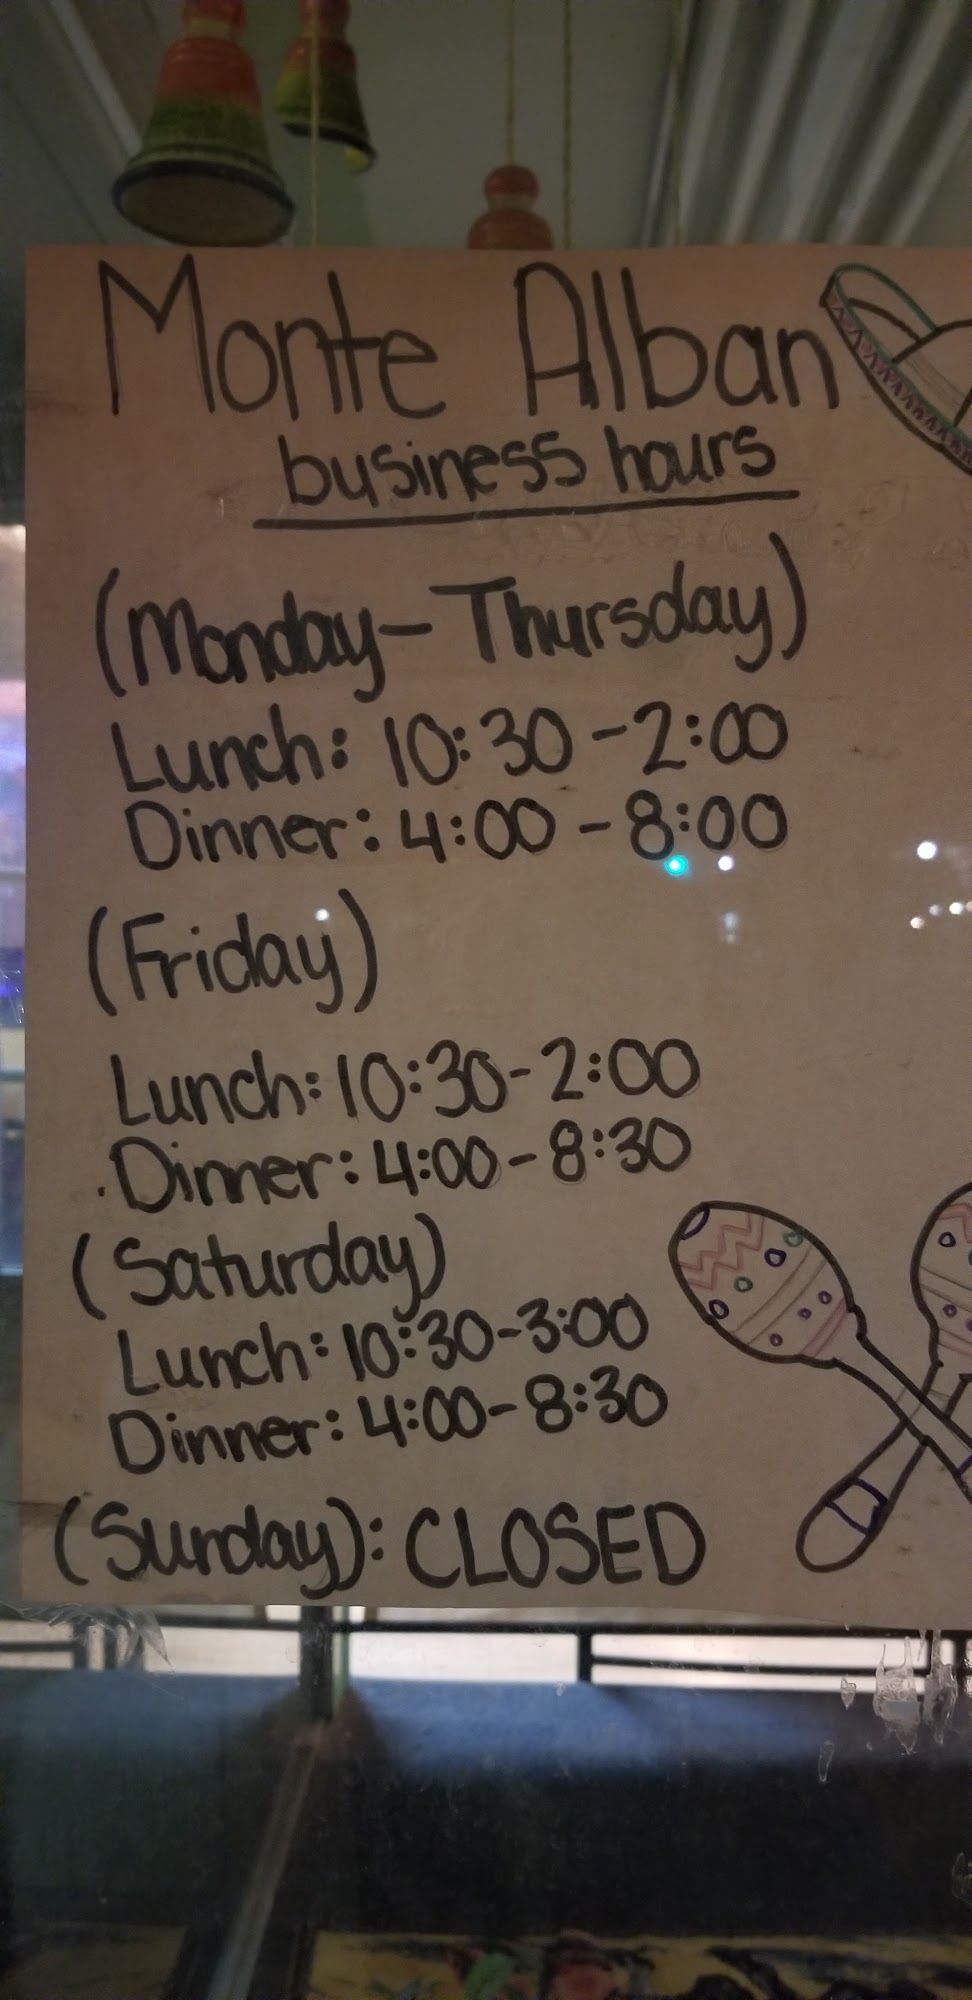 Monte Alban
business hours
(Monday-Thursday)
Lunch: 10:30-2:00
Dinner: 4:00-8:00
(Friday)
Lunch: 10:30-2:00
Dinner: 4:00-8:30
(Saturday)
Lunch: 10:30-3:00
Dinner: 4:00-8:30
(Sunday): CLOSED